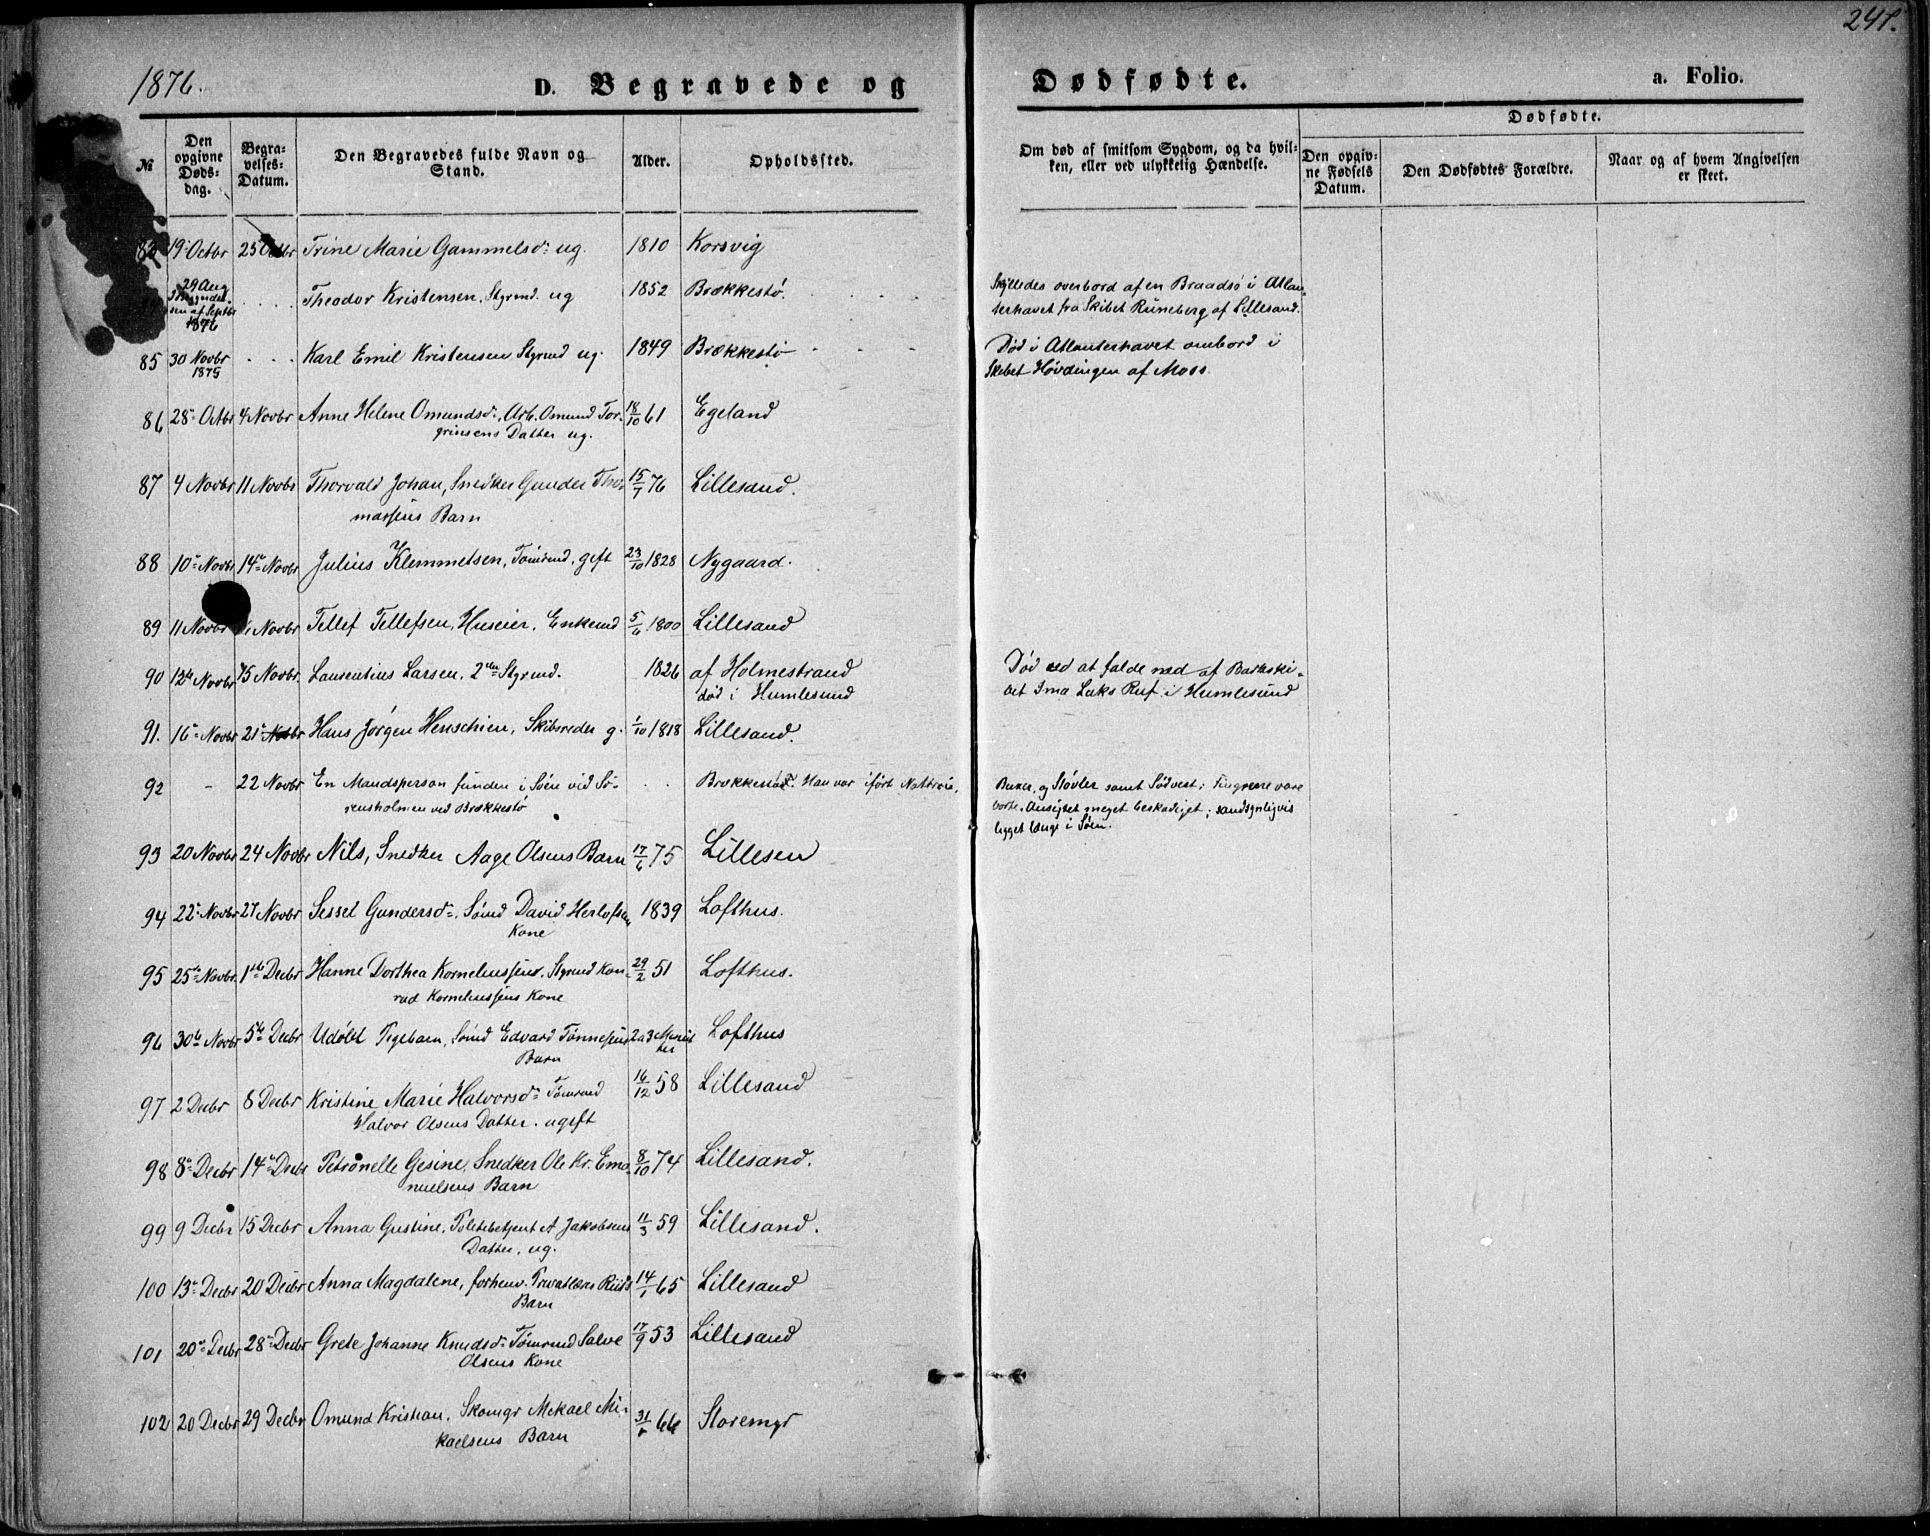 241.
1876.
D. Begravede og Dødfødte.
a. Folio.
№
Den opgivne Døds-dag.
Begra-velses-Datum.
Den Begravedes fulde Navn og Stand.
Alder.
Opholdssted.
Om død af smitsom Sygdom, og da hvil-ken, eller ved ulykkelig Hændelse.
Dødfødte.
Den opgiv-ne Fødsels Datum.
Den Dødfødtes Forældre.
Naar og af hvem Angivelsen er skeet.
83 19 Octbr 25 Octbr Trine Marie Gammelsd: ug. 1810 Korsvig
29 Aug
Theodor Kristensen, Styrmd. ug 1852 Brækkestø. Skylledes overbord af en Braadsø i Atlan-
sen af Septbr
1876
terhavet fra Skibet Runeberg af Lillesand.
85 30 Novbr Karl Emil Kristensen Styrmd ug. 1849 Brækkestø Død i Atlanterhavet ombord i
1875
Skibet Høvdingen af Moss.
86 28 Octbr 4 Novbr Anne Helene Omundsd:, Arb. Omund Tor- 18/10 61 Egeland
grinsens Datter ug.
87 4 Novbr 11 Novbr Thorvald Johan, Snedker Gunder Tho- 15/7 76 Lillesand.
massens Barn
88 10 Novbr 14 Novbr Julius Klemmetsen, Tømrmd, gift 23/10 1828 Nygaard.
89 11 Novbr Novbr Tellef Tellefsen, Huseier, Enkemd 5/6 1800 Lillesand
90 12te Novbr 15 Novbr. Laurentius Larsen, 2den Styrmd. 1826 af Holmestrand Død ved at falde ned af Barkski-
død i Humlesund
bet Ima Luks Ruf i Humlesund
91. 16 Novbr 21 Novbr Hans Jørgen Henschien, Skibsreder g. 1/10 1818 Lillesand.
92 - 22 Novbr En Mandsperson funden i Søen ved Sø- Brækkestø. Han var iført Nattrøie, Buxer, og Støvler samt Sydvest; Fingrene vare
rensholmen ved Brækkestø
borte, Ansigtet meget beskadiget; sandsynligvis
ligget længe i Søen.
93 20 Novbr 24 Novbr Nils, Snedker Aage Olsens Barn 17/6 75 Lillesen
94 22 Novbr 27 Novbr Sessel Gundersd:, Sømd David Herlofsen 1839 Lofthus.
Kone
95 25de Novbr. 1ste Decbr Hanne Dorthea Korneliussens, Styrmd Kon- 29/2 51 Lofthus.
rad Korneliussens Kone
96 30te Novbr 5te Decbr Udøbt Pigebarn, Sømd Edvard Tønnesens 2 a 3 Minut- Lofthus
Barn
ter
97 2 Decbr 8 Decbr Kristine Marie Halvorsd: Tømrmd 16/12 58 Lillesand
Halvor Olsens Datter. ugift
98 8 Decbr 14 Decbr Petronelle Gesine, Snedker Ole Kr. Ema- 8/10 74 Lillesand.
nuelsens Barn
99 9 Decbr 15 Decbr Anna Gustine, Politibetjent A Jakobsens 11/3 59 Lillesand.
Datter, ug.
100 13 Decbr 20 Decbr Anna Magdalene, forhenv. Privatlærer Riis's 14/1 65 Lillesand
Barn
101 20 Decbr 28 Decbr Grete Johanne Knudsd: Tømrmd Salve 17/9 53 Lillesand
Olsens Kone
102 20 Decbr 29 Decbr Omund Kristian, Skomgr Mekael Mi- 66 Storemyr
kaelsens Barn